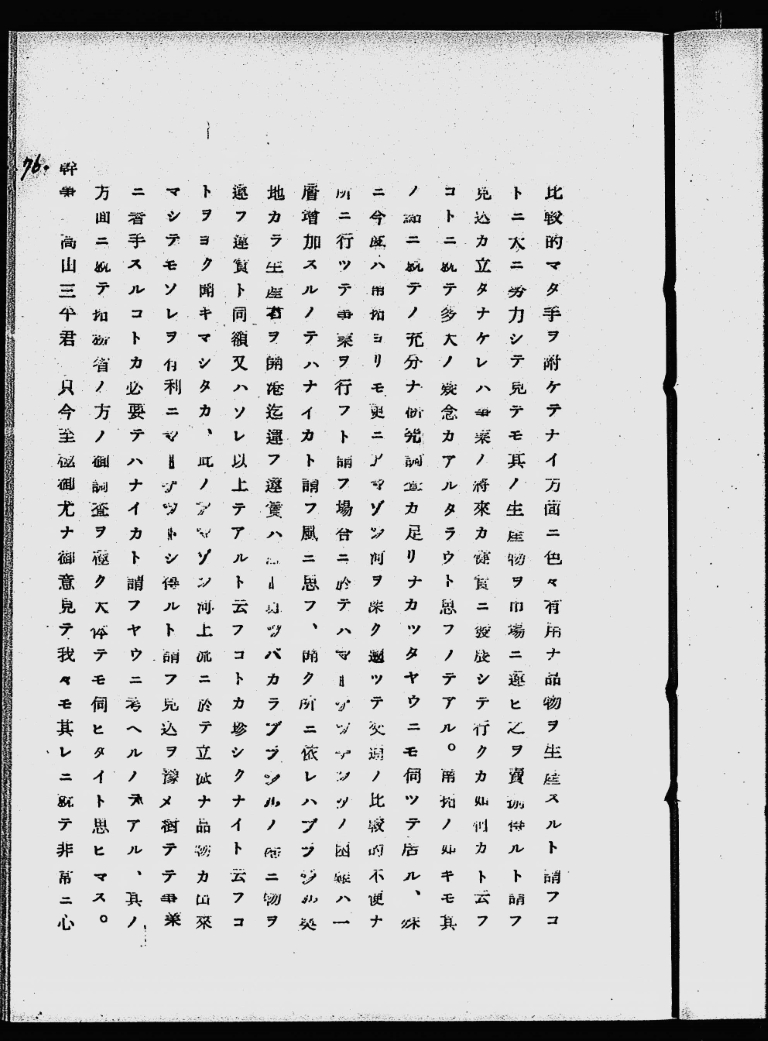 比較的マタ手ヲ附ケテナイ方面ニ色々有用ナ品物ヲ生産スルト謂フコ
トニ大ニ努力シテ見テモ其ノ生産物ヲ市場ニ運ヒ之ヲ賣捌得ルト謂フ
見込カ立タナケレハ事業ノ將來カ健實ニ發展シテ行クカ如何カト云フ
コトニ就テ多大ノ疑念カアルタラウト思フノテアル。南拓ノ如キモ其
ノ點ニ就テノ充分ナ研究調査カ足リナカツタヤウニモ伺ツテ居ル、殊
ニ今度ハ南拓ヨリモ更ニアマゾン河ヲ深ク遡ツテ交通ノ比較的不便ナ
所ニ行ツテ事業ヲ行フト謂フ場合ニ於テハマーケツチングノ困難ハ一
層增加スルノテハナイカト謂フ風ニ思フ、聞ク所ニ依レハブラジル奥
地カラ生産者ヲ開港迄運フ運賃ハヨーロツパカラブラジルノ港ニ物ヲ
運フ運賃ト同額又ハソレ以上テアルト云フコトカ珍シクナイト云フコ
トヲヨク聞キマシタカ、此ノアマゾン河上流ニ於テ立派ナ品物カ出來
マシテモソレヲ有利ニマーケツトシ得ルト謂フ見込ヲ豫メ樹テテ事業
ニ着手スルコトカ必要テハナイカト謂フヤウニ考ヘルノテアル、其ノ
方面ニ就テ拓務省ノ方ノ御調査ヲ極ク大体テモ伺ヒタイト思ヒマス。
幹事 高山三平君 只今至極御尤ナ御意見テ我々モ其レニ就テ非常ニ心
76.